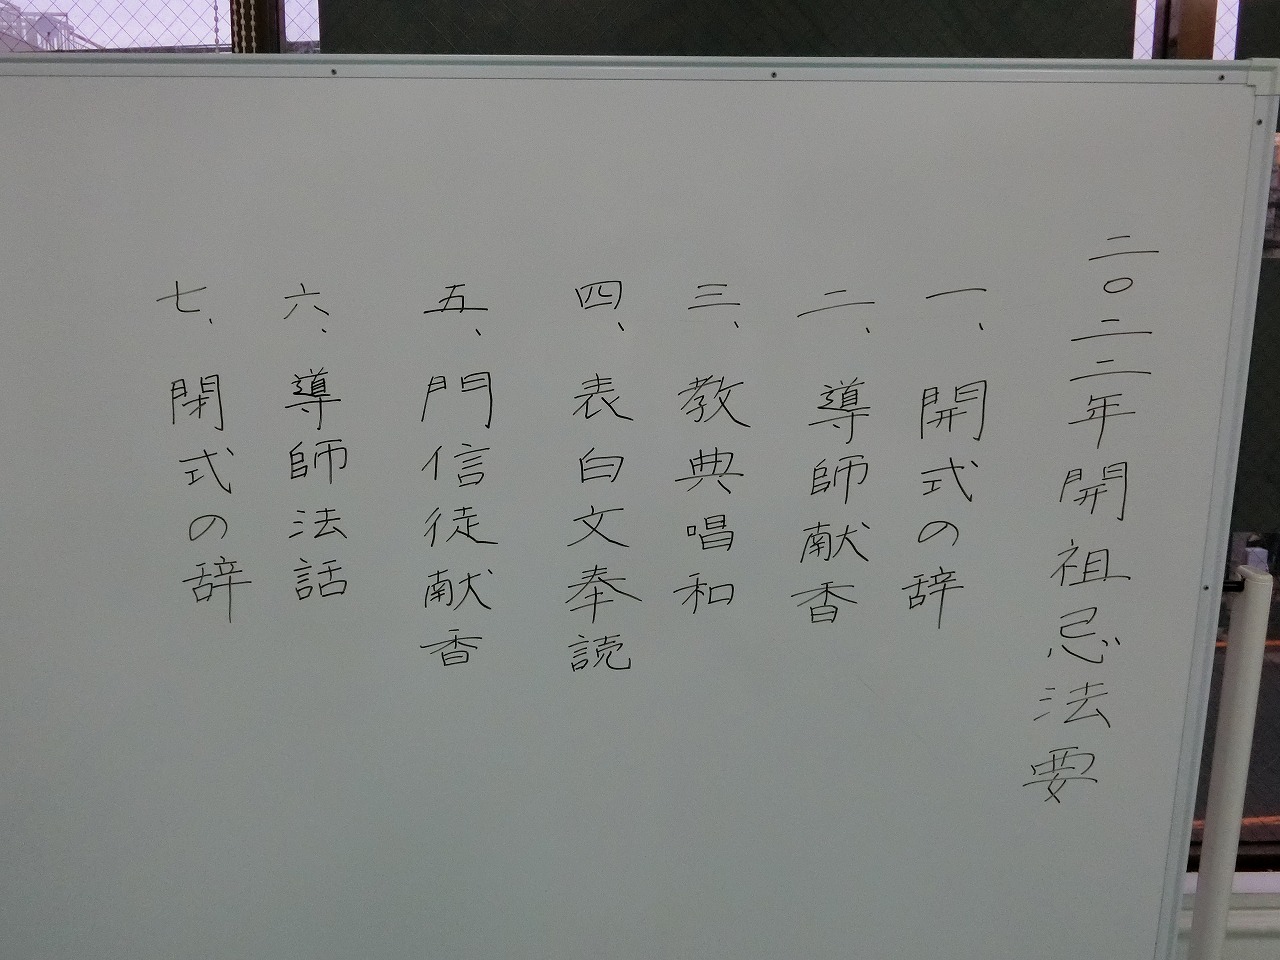 二〇二二年開祖忌法要
一、開式の辞
二、導師献香
三、教典唱和
四、表白文奉読
五、門信徒献香
六、導師法話
七、閉式の辞